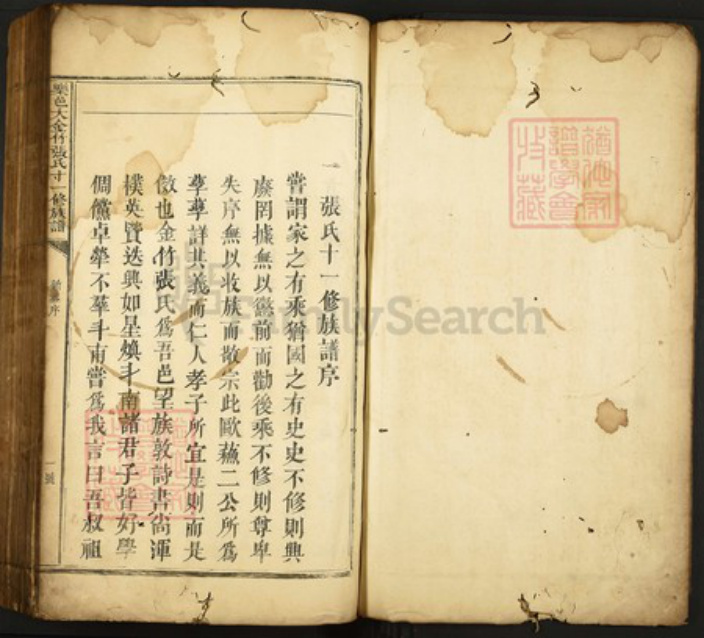 一 張氏十一修族譜序
嘗謂家之有乘猶國之有史史不修則興
廢罔據無以懲前而勸後乘不修則尊卑
失序無以收族而敬宗此歐蘇二公所爲
孳孳詳其義而仁人孝子所宜是則而是
傚也金竹張氏爲吾邑望族敦詩書尙渾
樸英賢迭興如星煥斗南諸君子皆好學
倜儻卓犖不羣斗南嘗爲我言曰吾叔祖
樂邑大金竹張氏十一修族譜
序
一號
譜學會
收藏
FamilySearch